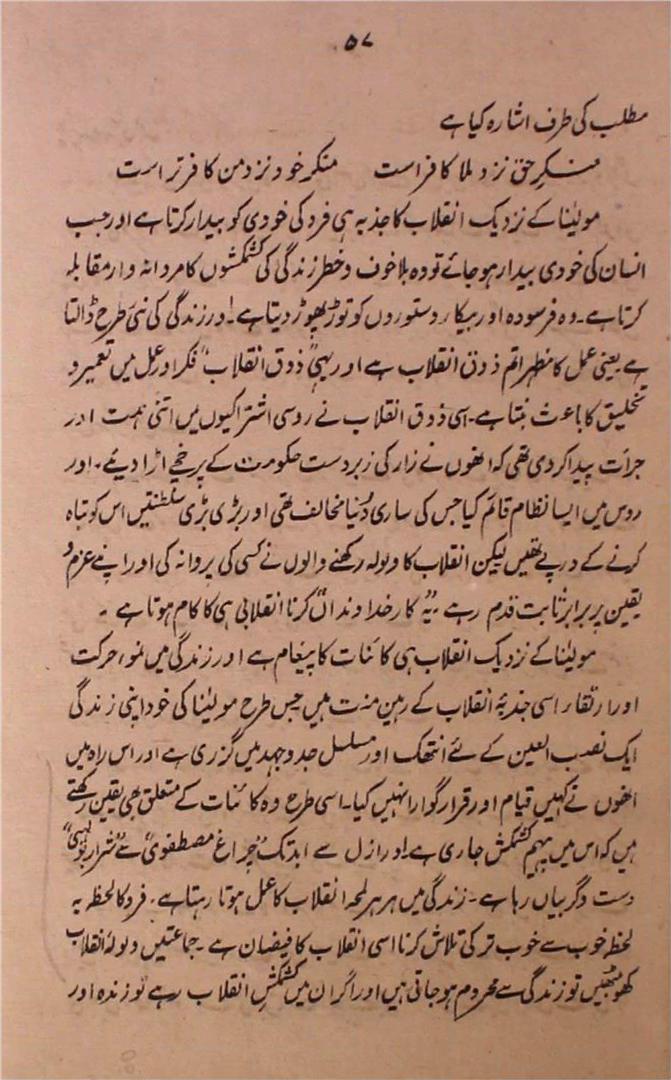 ۵۷
مطلب کی طرف اشارہ کیا ہے
منکرِ حق نزد ملا کافر است منکر خود نزد من کافر تر است
مولینا کے نزدیک انقلاب کا جذبہ ہی فرد کی خودی کو بیدار کرتا ہے اور جب
انسان کی خودی بیدار ہو جائے تو وہ بلا خوف و خطر زندگی کی کشمکشوں کا مردانہ وار مقابلہ
کرتا ہے۔ وہ فرسودہ اور بیکار دستوروں کو توڑ پھوڑ دیتا ہے۔ اور زندگی کی نئی طرح ڈالتا
ہے یعنی عمل کا مظہر اتم ذوق انقلاب ہے اور یہی "ذوق انقلاب" فکر اور عمل میں تعمیر و
تخلیق کا باعث بنتا ہے۔ اسی ذوق انقلاب نے روسی اشتراکیوں میں اتنی ہمت اور
جرأت پیدا کر دی تھی کہ انھوں نے زار کی زبردست حکومت کے پرخچے اڑا دیئے۔ اور
روس میں ایسا نظام قائم کیا جس کی ساری دُنیا مخالف تھی اور بڑی بڑی سلطنتیں اس کو تباہ
کرنے کے درپے تھیں لیکن انقلاب کا ولولہ رکھنے والوں نے کسی کی پروا نہ کی اور اپنے عزم و
یقین پر برابر ثابت قدم رہے۔ یہ "کار خداونداں" کرنا انقلابی ہی کا کام ہوتا ہے ۔
مولینا کے نزدیک انقلاب ہی کائنات کا پیغام ہے اور زندگی میں نمو، حرکت
اور ارتقاء اسی جذبۂ انقلاب کے رہین منت ہیں جس طرح مولینا کی خود اپنی زندگی
ایک نصب العین کے لئے انتھک اور مسلسل جدوجہد میں گزری ہے اور اس راہ میں
انھوں نے کہیں قیام اور قرار گوارا نہیں کیا۔ اسی طرح وہ کائنات کے متعلق بھی یقین رکھتے
ہیں کہ اس میں پیہم کشمکش جاری ہے اور ازل سے ابد تک "چراغ مصطفوی" سے "شرار بولہبی"
دست و گریباں رہا ہے۔ زندگی میں ہر ہر لمحہ انقلاب کا عمل ہوتا رہتا ہے۔ فرد کا لحظہ بہ
لحظہ خوب سے خوب تر کی تلاش کرنا اسی انقلاب کا فیضان ہے ۔ جماعتیں ولولۂ انقلاب
کھو بیٹھیں تو زندگی سے محروم ہو جاتی ہیں اور اگر ان میں کشمکشِ انقلاب رہے تو زندہ اور